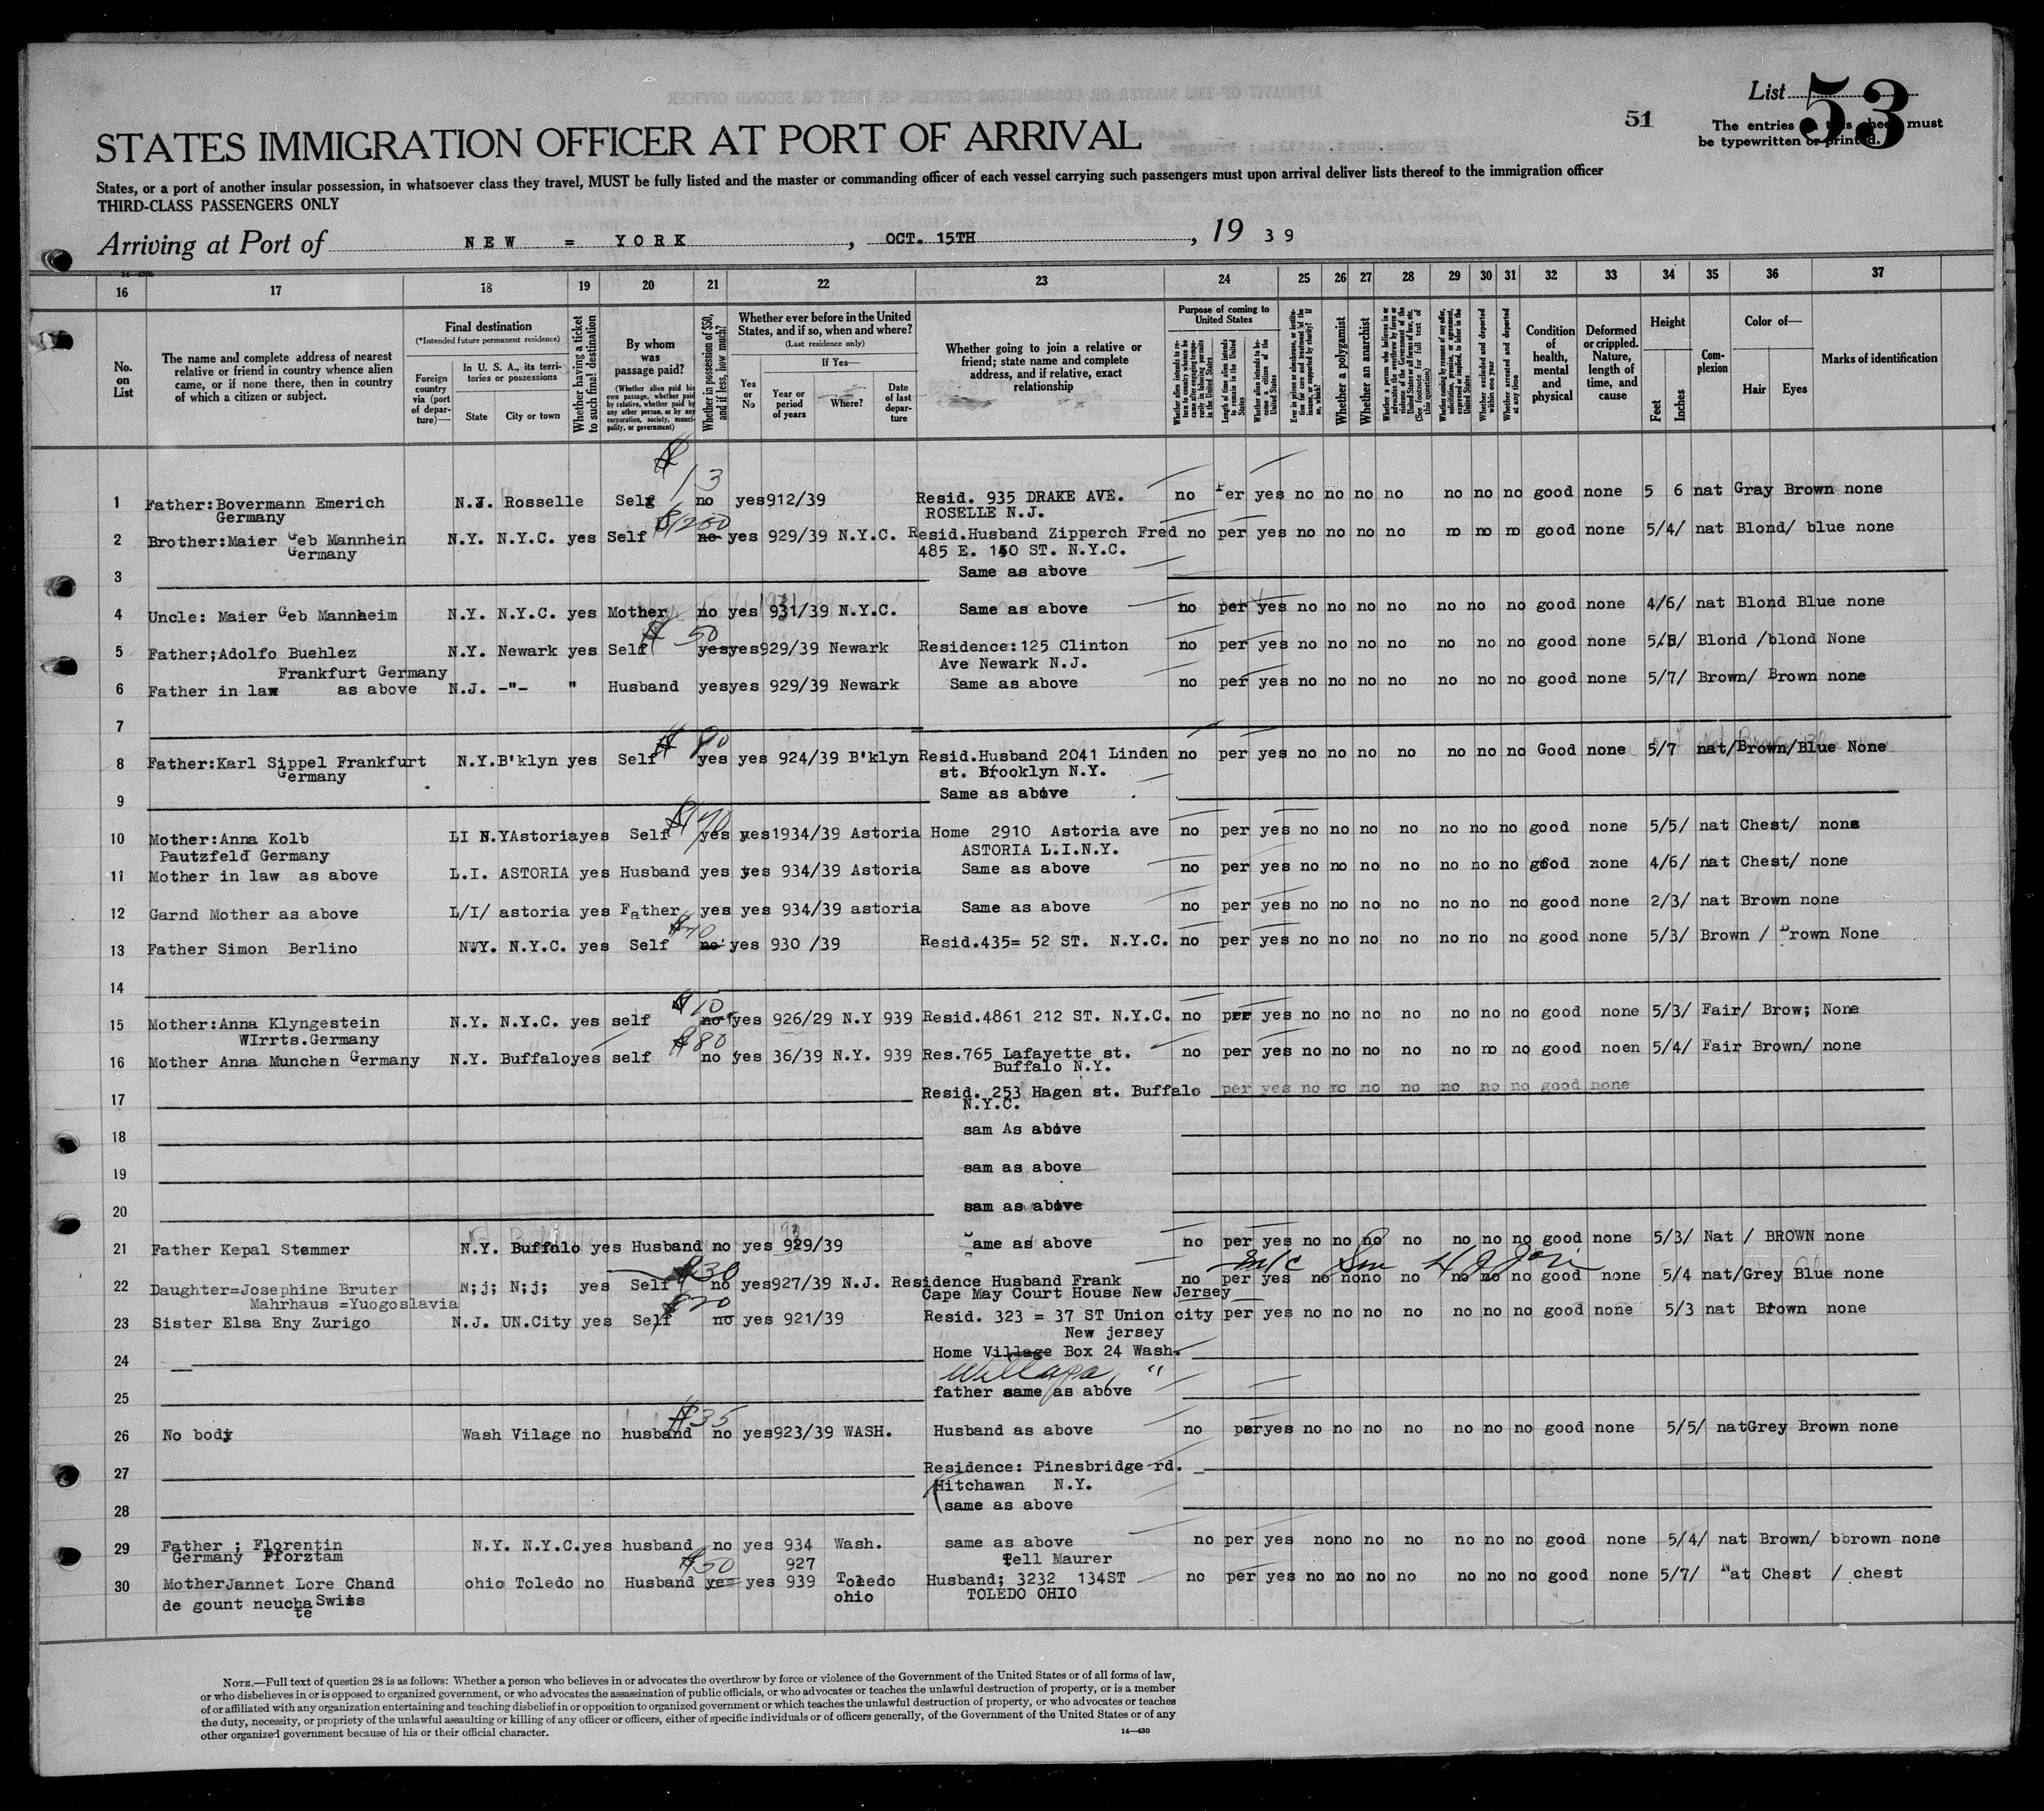 List 53
51
The entries on this sheet must
be typewritten or printed.
STATES IMMIGRATION OFFICER AT PORT OF ARRIVAL
States, or a port of another insular possession, in whatsoever class they travel, MUST be fully listed and the master or commanding officer of each vessel carrying such passengers must upon arrival deliver lists thereof to the immigration officer
THIRD-CLASS PASSENGERS ONLY
Arriving at Port of NEW = YORK, OCT. 15TH, 19 39
16 17 18 19 20 21 22 23 24 25 26 27 28 29 30 31 32 33 34 35 36 37
No. on List
The name and complete address of nearest relative or friend in country whence alien came, or if none there, then in country of which a citizen or subject.
Final destination
(*Intended future permanent residence)
Foreign country via (port of departure)—
In U. S. A., its territories or possessions
State City or town
Whether having a ticket to such final destination
By whom was passage paid?
(Whether alien paid his own passage, whether paid by relative, whether paid by any other person, or by any corporation, society, municipality, or government)
Whether in possession of $50, and if less, how much?
Whether ever before in the United States, and if so, when and where?
(Last residence only)
Yes or No
If Yes—
Year or period of years
Where?
Date of last departure
Whether going to join a relative or friend; state name and complete address, and if relative, exact relationship
Purpose of coming to United States
Whether alien intends to return to country whence he came after engaging temporarily in laboring pursuits in the United States
Length of time alien intends to remain in the United States
Whether alien intends to become a citizen of the United States
Ever in prison or almshouse, or institution for care and treatment of the insane, or supported by charity? If so, which?
Whether a polygamist
Whether an anarchist
Whether a person who believes in or advocates the overthrow by force or violence of the Government of the United States or all forms of law, etc. (See footnote for full text of this question)
Whether coming by reason of any offer, solicitation, promise, or agreement, expressed or implied, to labor in the United States
Whether excluded and deported within one year
Whether arrested and deported at any time
Condition of health, mental and physical
Deformed or crippled. Nature, length of time, and cause
Height
Feet Inches
Complexion
Color of—
Hair Eyes
Marks of identification
1 Father:Bovermann Emerich N.J. Rosselle Self $13 no yes 912/39 Resid. 935 DRAKE AVE. no Per yes no no no no no no no good none 5 6 nat Gray Brown none
Germany ROSELLE N.J.
2 Brother:Maier Geb Mannhein N.Y. N.Y.C. yes Self $1200 no yes 929/39 N.Y.C. Resid.Husband Zipperch Fred no per yes no no no no no no no good none 5/4/ nat Blond/ blue none
Germany 485 E. 140 ST. N.Y.C.
3 Same as above
4 Uncle: Maier Geb Mannheim N.Y. N.Y.C. yes Mother no yes 931/39 N.Y.C. Same as above no per yes no no no no no no no good none 4/6/ nat Blond Blue none
5 Father;Adolfo Buehlez N.Y. Newark yes Self $50 yes yes 929/39 Newark Residence:125 Clinton no per yes no no no no no no no good none 5/5/ Blond /blond None
Frankfurt Germany Ave Newark N.J.
6 Father in law as above N.J. -"- " Husband yes yes 929/39 Newark Same as above no per yes no no no no no no no good none 5/7/ Brown/ Brown none
7
8 Father:Karl Sippel Frankfurt N.Y. B'klyn yes Self $80 yes yes 924/39 B'klyn Resid.Husband 2041 Linden no per yes no no no no no no no Good none 5/7 nat/Brown/Blue None
Germany st. Brooklyn N.Y.
9 Same as above
10 Mother:Anna Kolb LI N.Y Astoria yes Self $170 yes yes 1934/39 Astoria Home 2910 Astoria ave no per yes no no no no no no no good none 5/5/ nat Chest/ none
Pautzfeld Germany ASTORIA L.I.N.Y.
11 Mother in law as above L.I. ASTORIA yes Husband yes yes 934/39 Astoria Same as above no per yes no no no no no no no good none 4/6/ nat Chest/ none
12 Garnd Mother as above L/I/ astoria yes Father yes yes 934/39 astoria Same as above no per yes no no no no no no no good none 2/3/ nat Brown none
13 Father Simon Berlino N.Y. N.Y.C. yes Self $70 no yes 930 /39 Resid.435= 52 ST. N.Y.C. no per yes no no no no no no no good none 5/3/ Brown / Brown None
14
15 Mother:Anna Klyngestein N.Y. N.Y.C. yes self $10 no yes 926/29 N.Y 939 Resid.4861 212 ST. N.Y.C. no per yes no no no no no no no good none 5/3/ Fair/ Brow; None
WIrrts.Germany
16 Mother Anna Munchen Germany N.Y. Buffalo yes self $80 no yes 36/39 N.Y. 939 Res.765 Lafayette st. no per yes no no no no no no no good noen 5/4/ Fair Brown/ none
Buffalo N.Y.
17 Resid. 253 Hagen st. Buffalo per yes no no no no no no no good none
N.Y.C.
18 sam As above
19 sam as above
20 sam as above
21 Father Kepal Stemmer N.Y. Buffalo yes Husband no yes 929/39 Same as above no per yes no no no no no no no good none 5/3/ Nat / BROWN none
22 Daughter=Josephine Bruter N;j; N;j; yes Self $30 no yes 927/39 N.J. Residence Husband Frank no per yes no no no no no no no good none 5/4 nat/Grey Blue none
Mahrhaus =Yuogoslavia Cape May Court House New Jersey
23 Sister Elsa Eny Zurigo N.J. UN.City yes Self $20 no yes 921/39 Resid. 323 = 37 ST Union city per yes no no no no no no no good none 5/3 nat Brown none
New jersey
24 Home Village Box 24 Wash.
Willapa "
25 father same as above
26 No body Wash Vilage no husband $35 no yes 923/39 WASH. Husband as above no per yes no no no no no no no good none 5/5/ nat Grey Brown none
27 Residence: Pinesbridge rd.
Hitchawan N.Y.
28 same as above
29 Father ; Florentin N.Y. N.Y.C. yes husband no yes 934 Wash. same as above no per yes no no no no no no no good none 5/4/ nat Brown/ bbrown none
Germany Pforztam 927 Tell Maurer
30 Mother Jannet Lore Chand ohio Toledo no Husband $50 yes yes 939 Toledo Husband; 3232 134ST no per yes no no no no no no no good none 5/7/ Nat Chest / chest
de gount neuchate Swiss ohio TOLEDO OHIO
NOTE.—Full text of question 28 is as follows: Whether a person who believes in or advocates the overthrow by force or violence of the Government of the United States or of all forms of law,
or who disbelieves in or is opposed to organized government, or who advocates the assassination of public officials, or who advocates or teaches the unlawful destruction of property, or is a member
of or affiliated with any organization entertaining and teaching disbelief in or opposition to organized government or which teaches the unlawful destruction of property, or who advocates or teaches
the duty, necessity, or propriety of the unlawful assaulting or killing of any officer or officers, either of specific individuals or of officers generally, of the Government of the United States or of any
other organized government because of his or their official character.
14—430